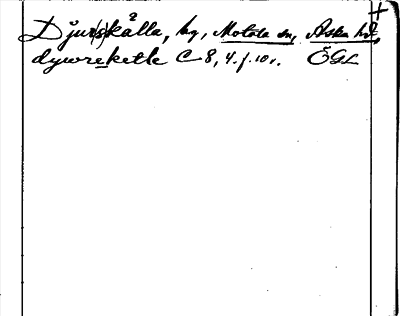 +
Djur(s)källa, by, Motala sn, Aska hd,
dywrekelle C 8, 4. f. 10 r. ÖGL